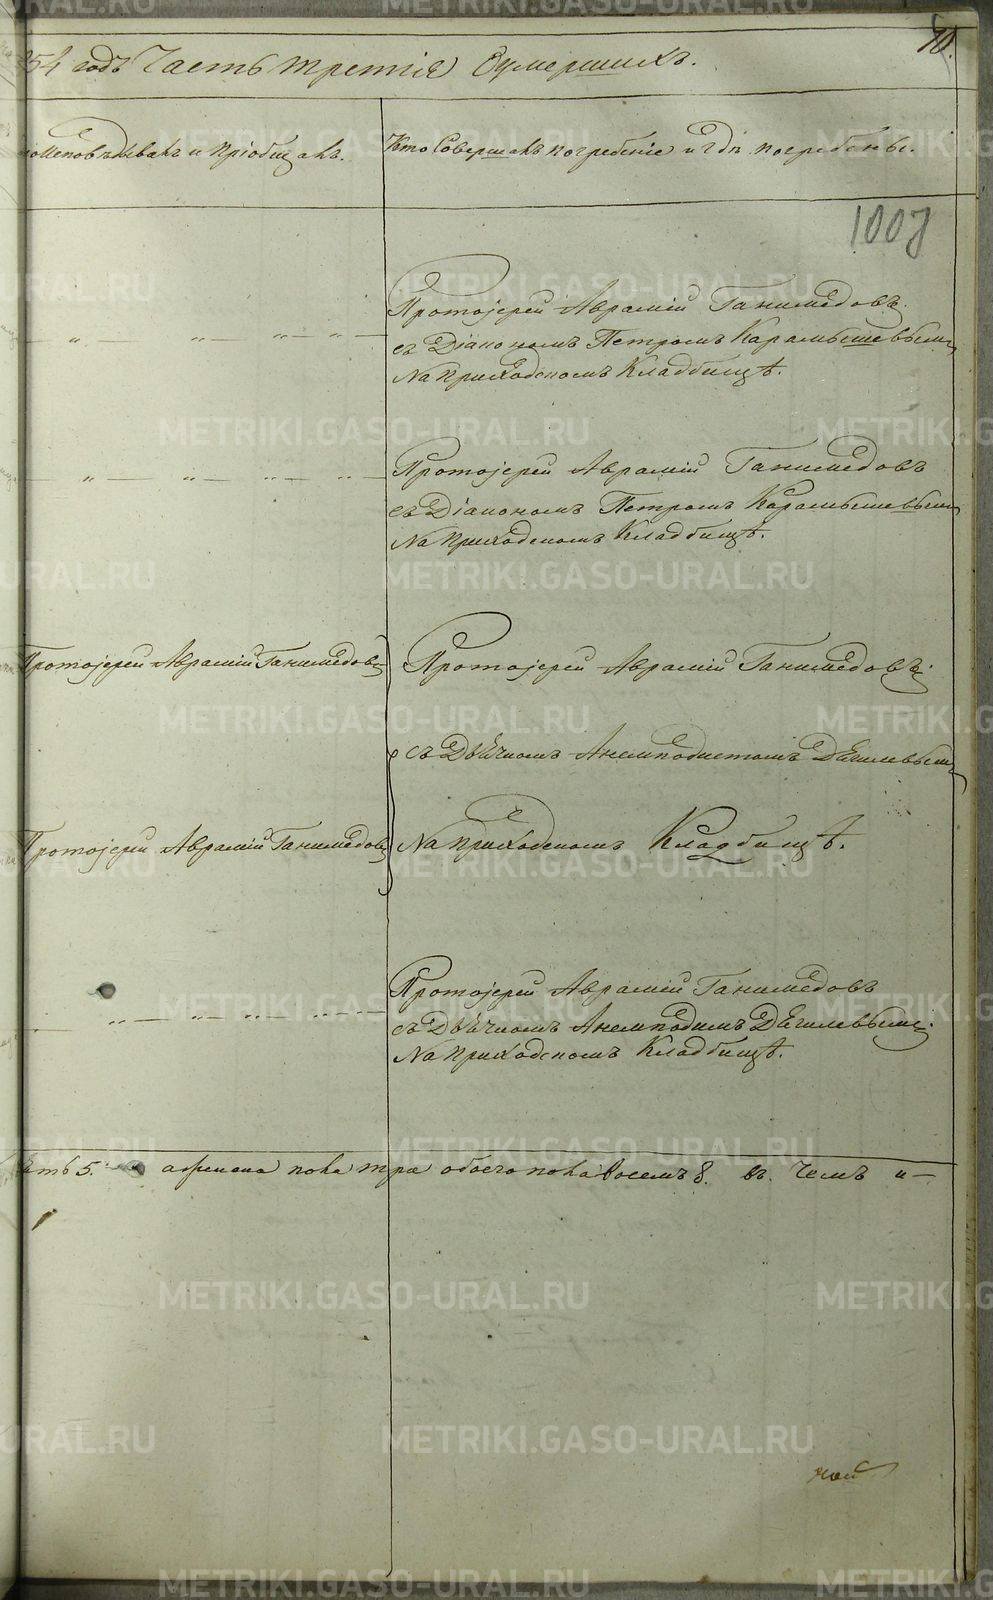 10.
854 годъ Часть третія О умершихъ.
исповѣдывалъ и пріобщалъ.
Кто совершалъ погребеніе и гдѣ погребены.
1007
Протоіерей Аврамій Ганимедовъ
съ Діакономъ Петромъ Карамышевымъ
На приходскомъ Кладбищѣ.
Протоіерей Аврамій Ганимедовъ
съ Діакономъ Петромъ Карамышевымъ
На приходскомъ Кладбищѣ.
Протоіерей Аврамій Ганимедовъ
Протоіерей Аврамій Ганимедовъ
съ Дьячкомъ Анемподистомъ Дягилевымъ
Протоіерей Аврамій Ганимедовъ
На приходскомъ Кладбищѣ.
Протоіерей Аврамій Ганимедовъ
съ Дьячкомъ Анемподистомъ Дягилевымъ
На приходскомъ Кладбищѣ.
ять 5. а женска пола три обоего пола восемь 8. въ чемъ и
METRIKI.GASO-URAL.RU